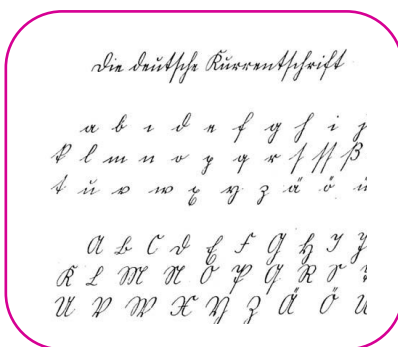 Die deutsche Kurrentschrift
a b c d e f g h i j
k l m n o p q r ſ ſſ ß
t u v w x y z ä ö ü
A B C D E F G H I J
K L M N O P Q R S
U V W X Y Z Ä Ö Ü